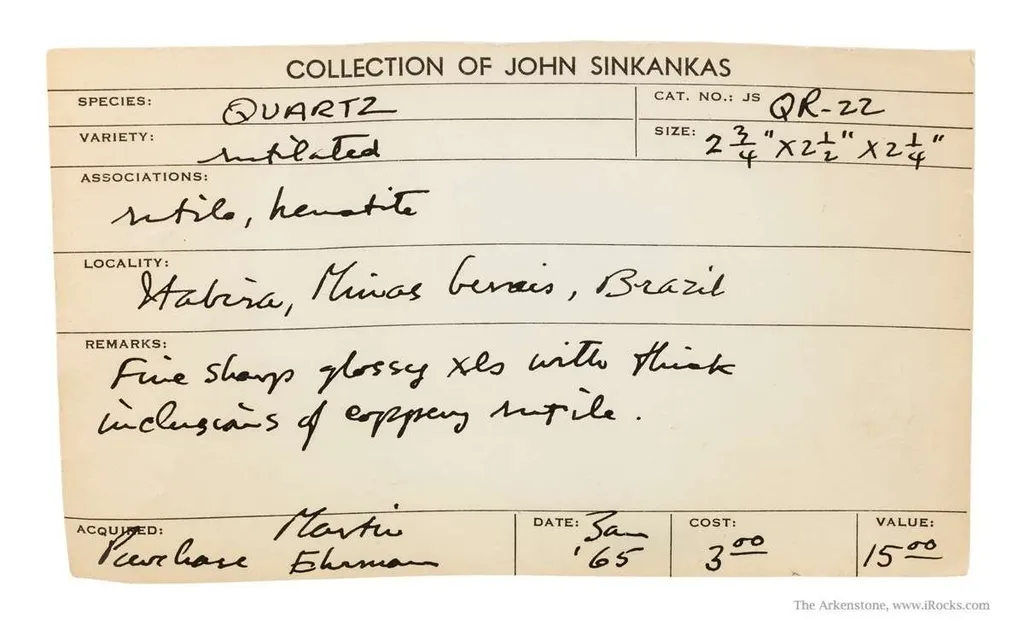 COLLECTION OF JOHN SINKANKAS
SPECIES: QUARTZ
CAT. NO.: JS QR-22
VARIETY: rutilated
SIZE: 2 3/4" X 2 1/2" X 2 1/4"
ASSOCIATIONS:
rutile, hematite
LOCALITY:
Itabira, Minas Gerais, Brazil
REMARKS:
Fine sharp glossy xls with thick
inclusions of coppery rutile.
ACQUIRED: Purchase Martin Ehrman
DATE: Jan '65
COST: 3 00
VALUE: 15 00
The Arkenstone, www.iRocks.com